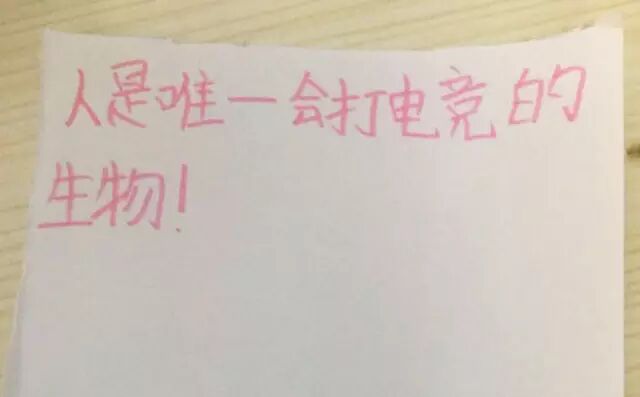 人是唯一会打电竞的
生物!